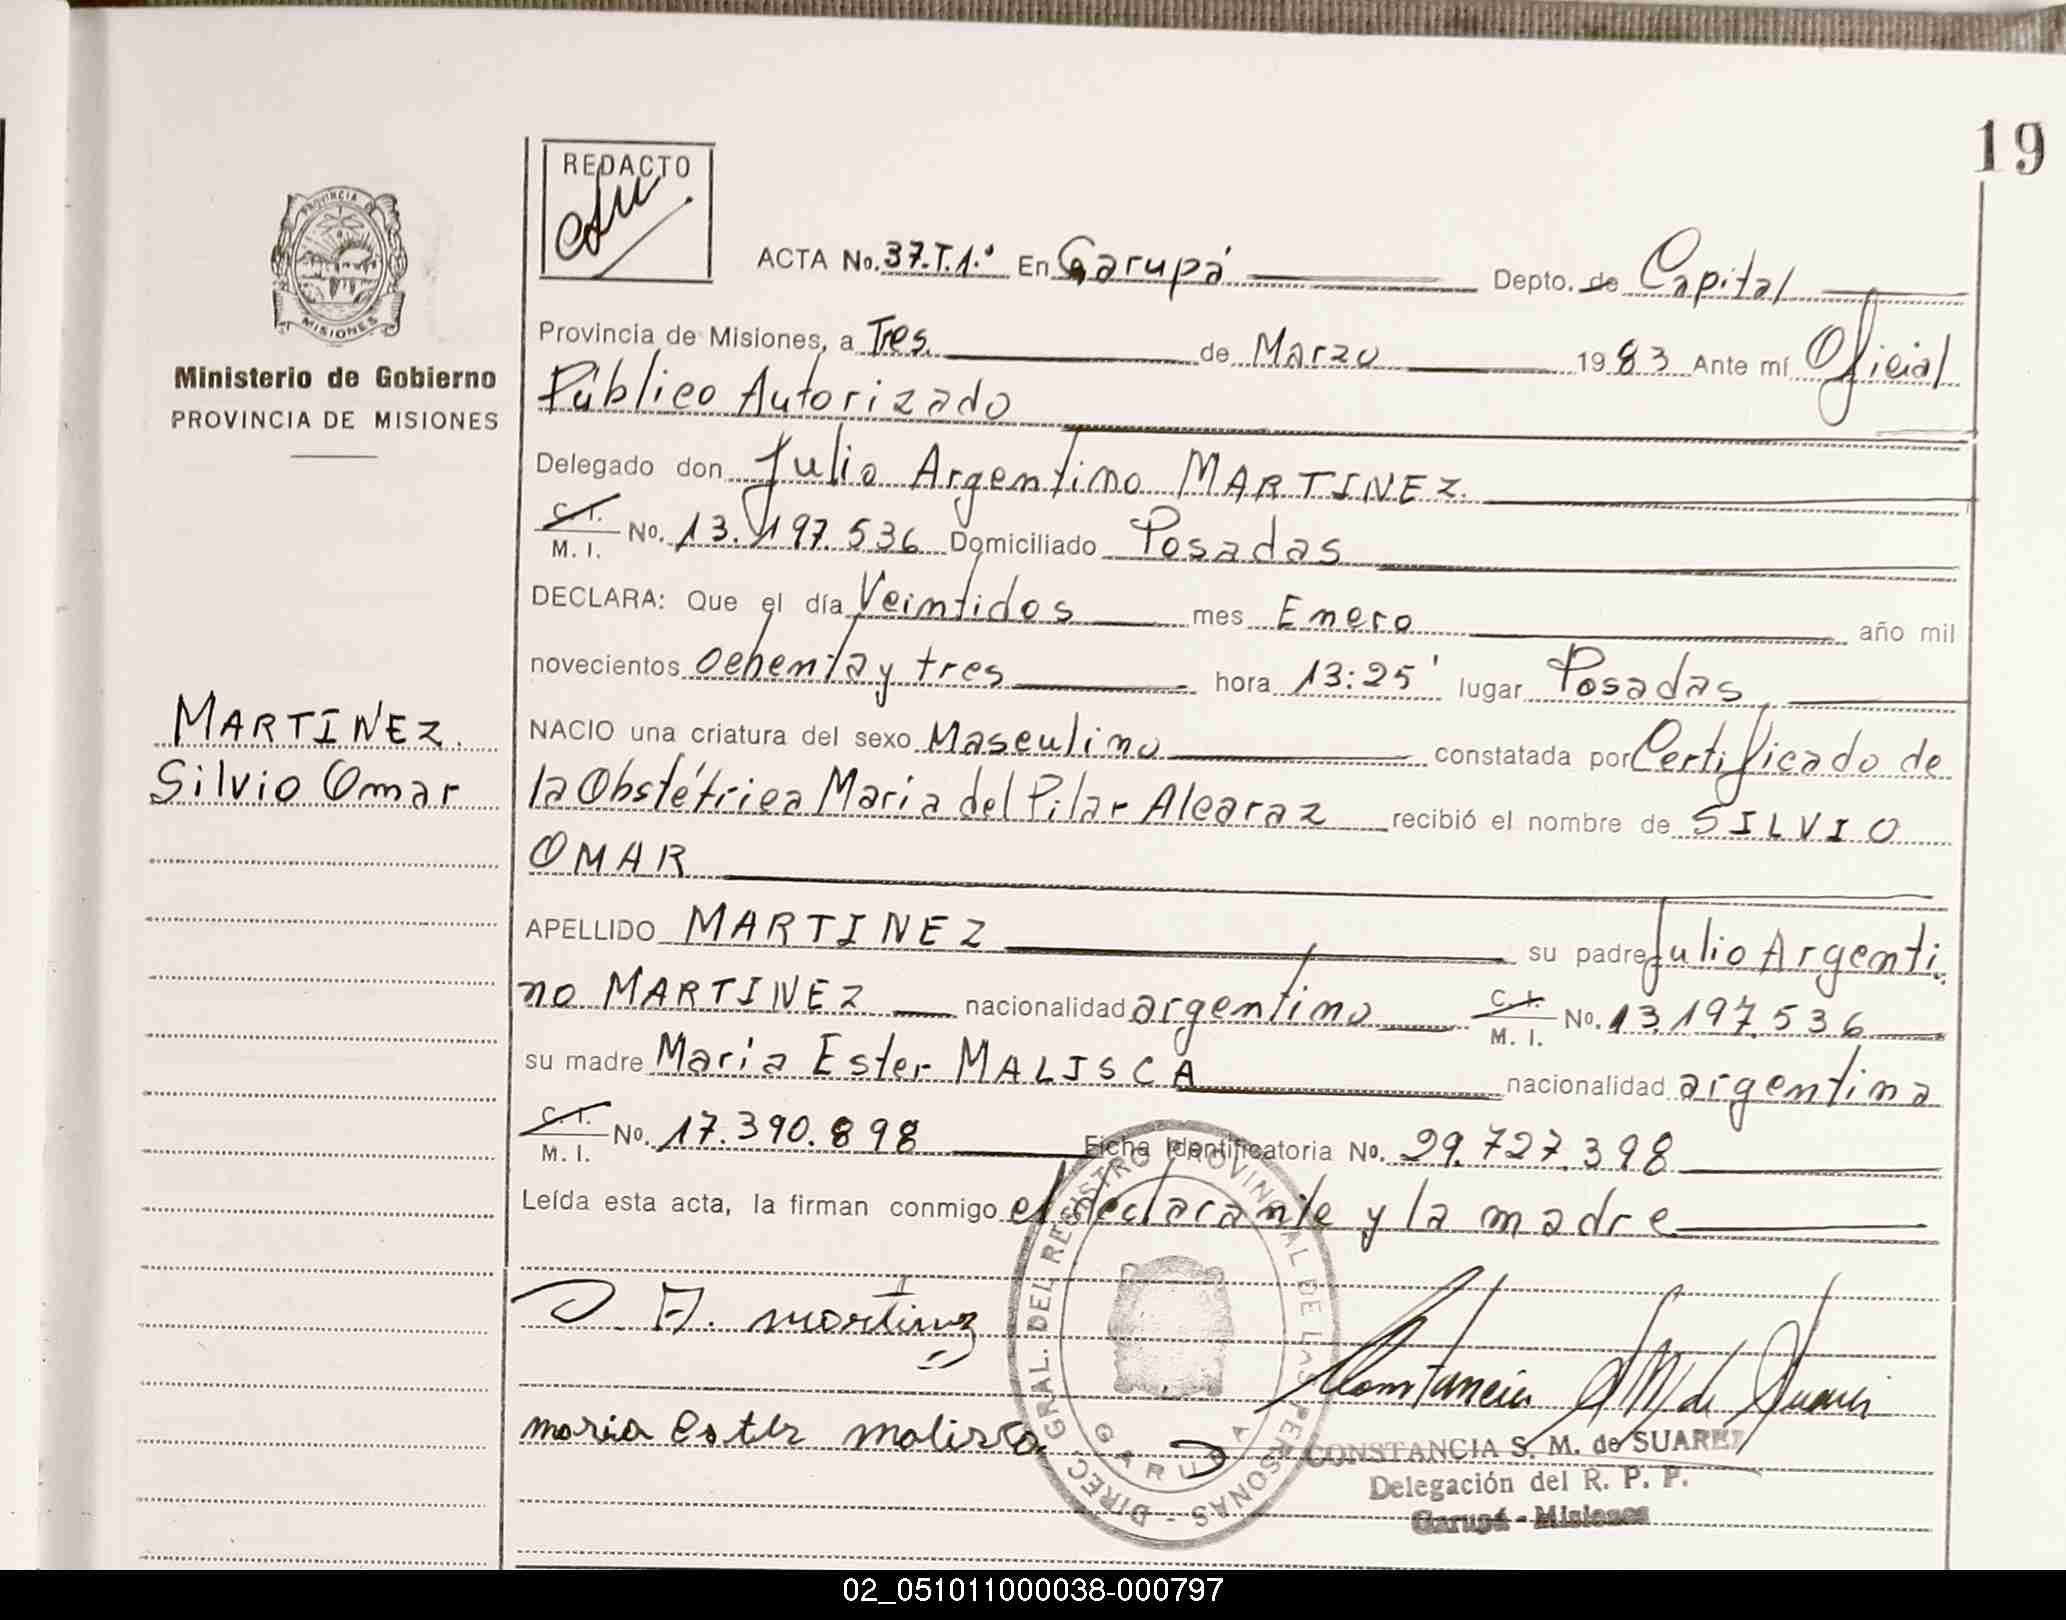 19
REDACTO
PROVINCIA DE
MISIONES
Ministerio de Gobierno
PROVINCIA DE MISIONES
ACTA No. 37.T.1.° En Garupá Depto. de Capital
Provincia de Misiones, a Tres de Marzo 1983 Ante mí Oficial
Público Autorizado
Delegado don Julio Argentino MARTINEZ.
C. I.
M. I. No. 13.197.536 Domiciliado Posadas
DECLARA: Que el día Veintidos mes Enero año mil
novecientos ochenta y tres hora 13:25' lugar Posadas
NACIO una criatura del sexo Masculino constatada por Certificado de
la Obstétrica Maria del Pilar Alcaraz recibió el nombre de SILVIO
OMAR
MARTINEZ.
Silvio Omar
APELLIDO MARTINEZ su padre Julio Argenti
no MARTINEZ nacionalidad argentino C. I.
M. I. No. 13.197.536
su madre Maria Ester MALISCA nacionalidad argentina
C. I.
M. I. No. 17.390.898 Ficha Identificatoria No. 29.727.398
Leída esta acta, la firman conmigo el declarante y la madre
J. A. martinez
maria ester malisca
DIREC. GRAL. DEL REGISTRO PROVINCIAL DE LAS PERSONAS -
GARUPA
Constancia S M de Suarez
CONSTANCIA S. M. de SUAREZ
Delegación del R. P. P.
Garupá - Misiones
02_051011000038-000797